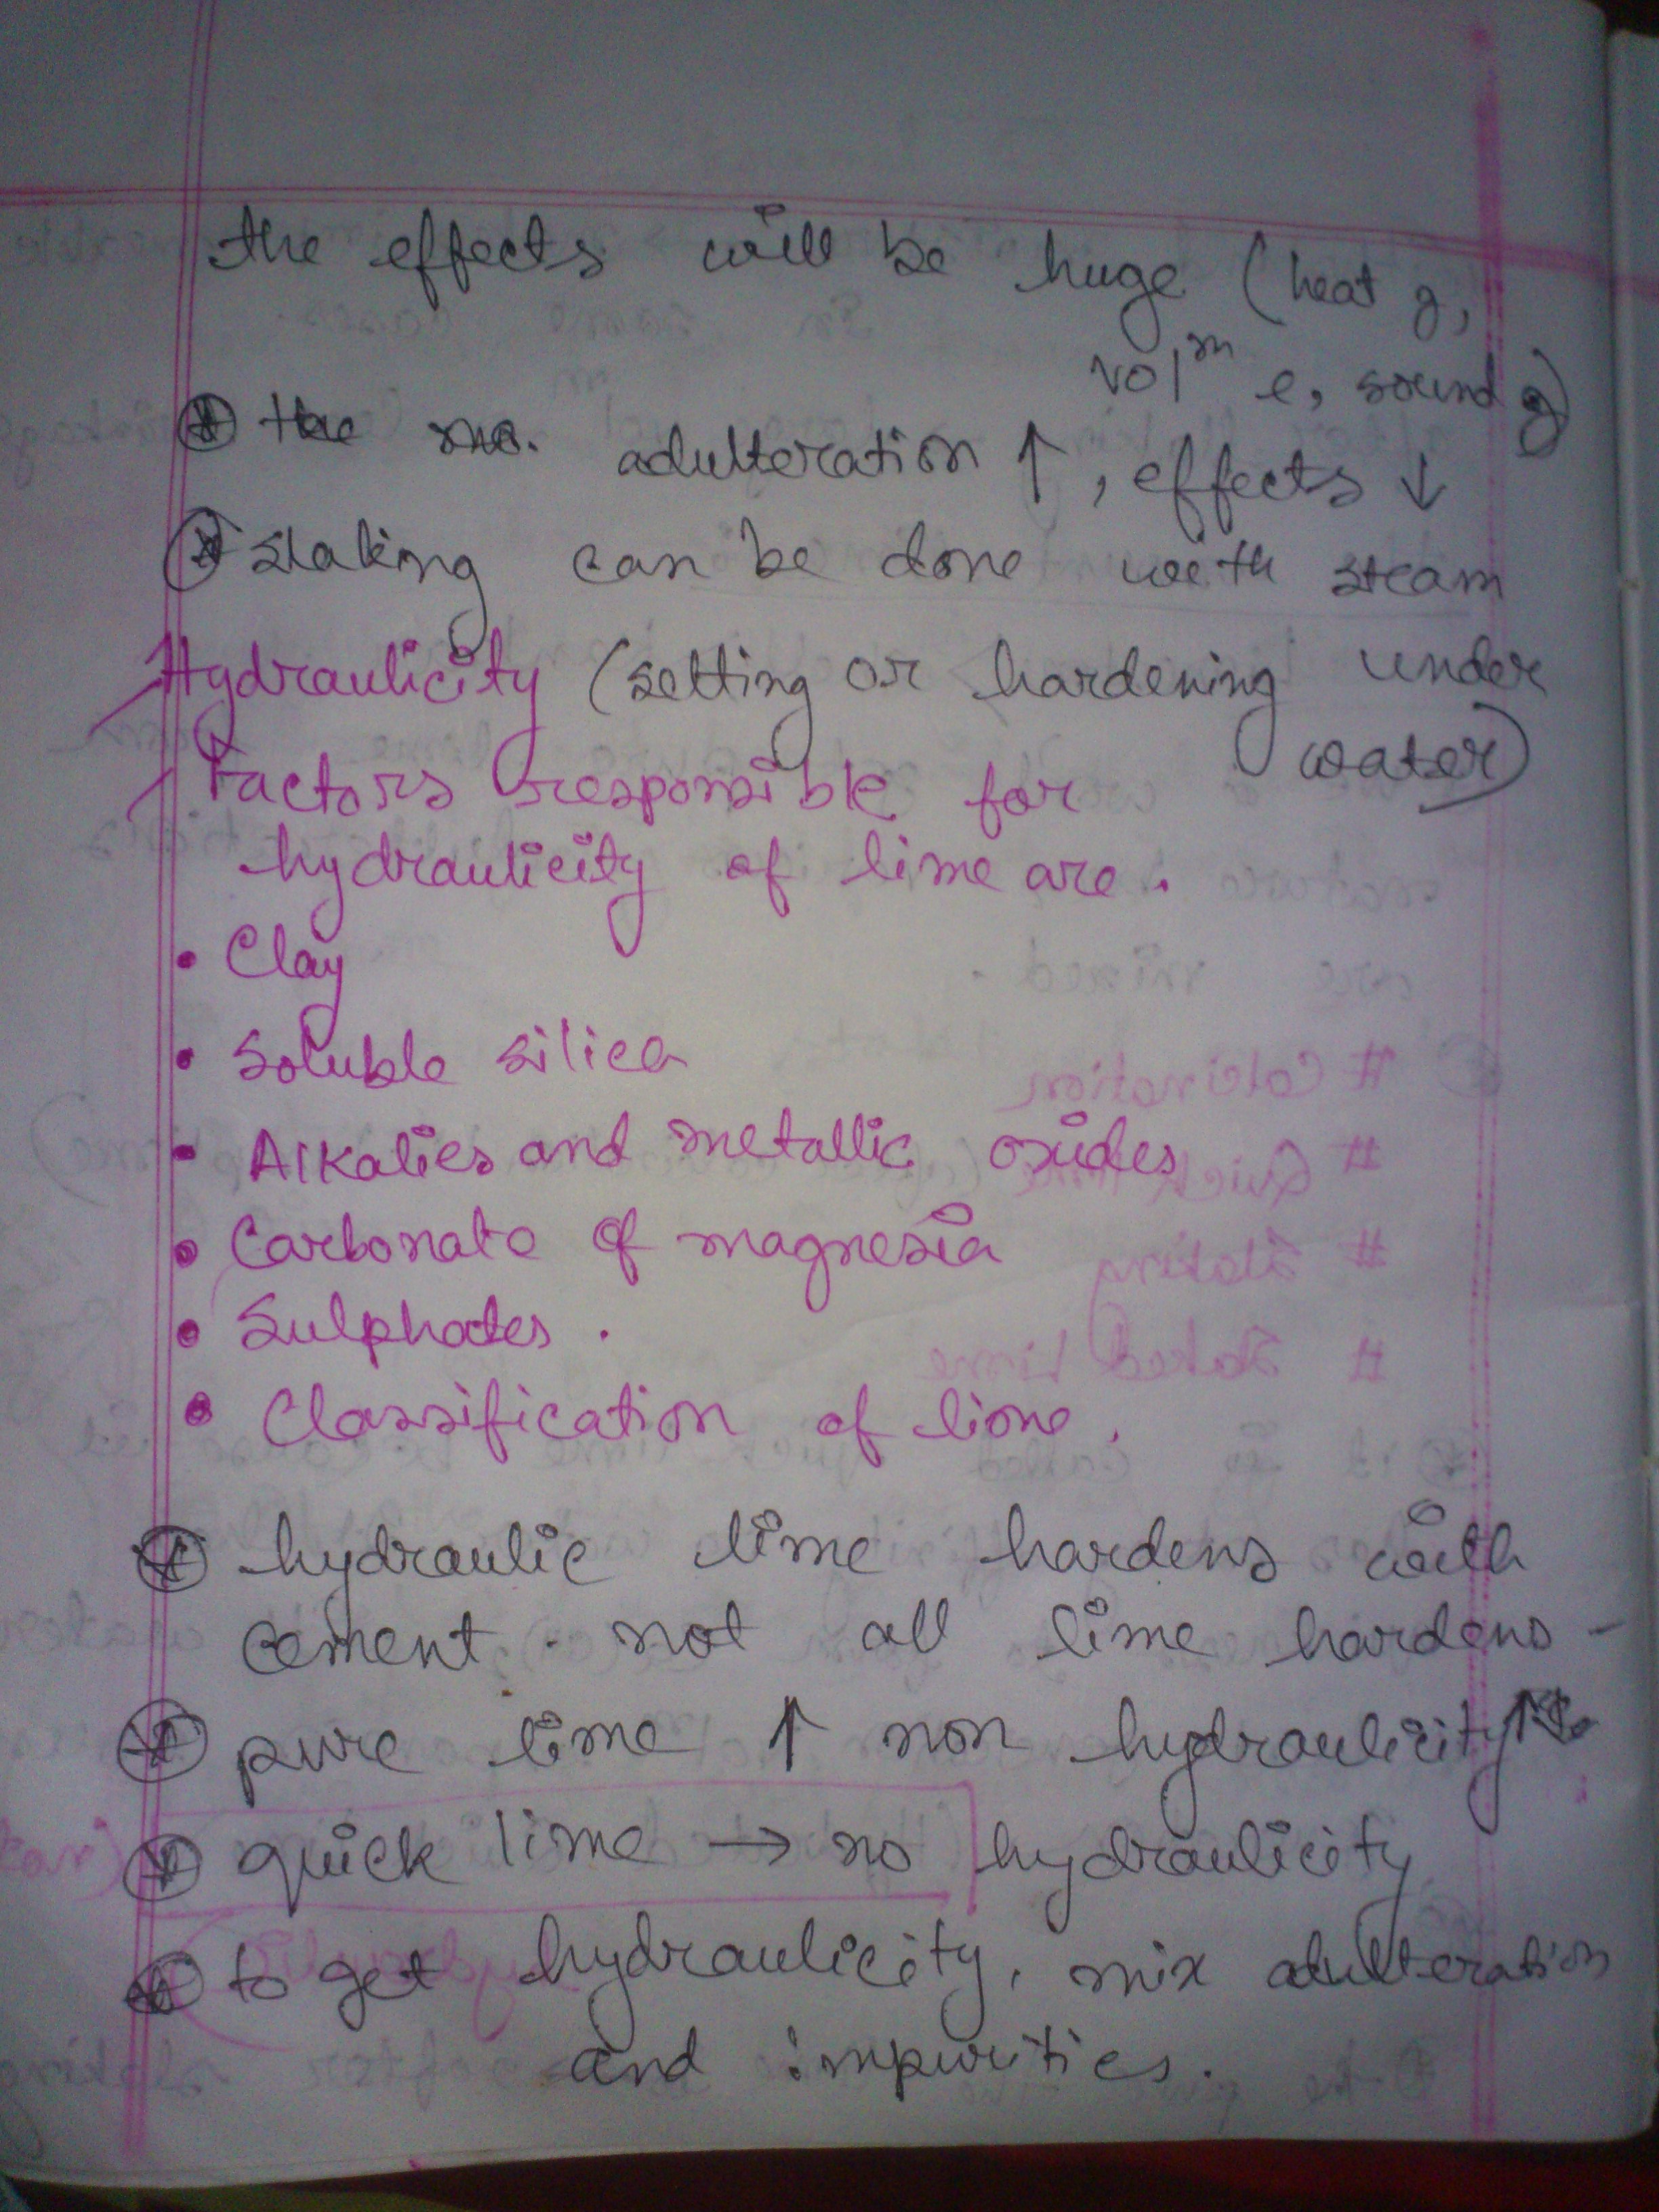 the effects will be huge (heat g,
vol^m e, sound g)
adulteration ↑, effects ↓
slaking can be done with steam
Hydraulicity (setting or hardening under
water)
Factors responsible for
hydraulicity of lime are.
• Clay
• Soluble silica
• Alkalies and metallic oxides
• Carbonate of magnesia
• Sulphates.
• Classification of lime.
hydraulic lime hardens with
cement. not all lime hardens -
pure lime ↑ non hydraulicity ↑
quick lime → no hydraulicity
to get hydraulicity, mix adulteration
and impurities.